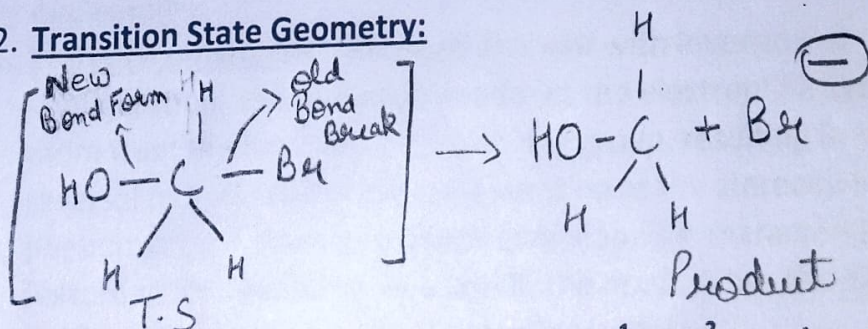 2. Transition State Geometry:
New
Bond Form
H
old
Bond
Break
HO-C-Br
H
H
T.S
H
HO-C + Br
H
H
Product